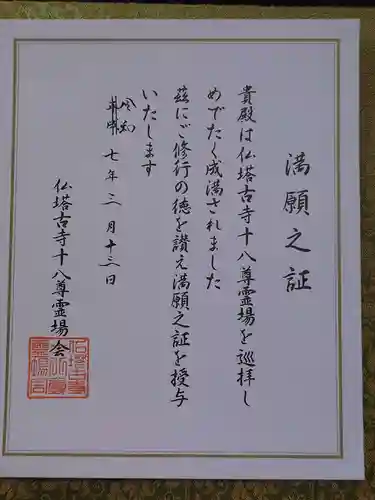 満願之証
貴殿は仏塔古寺十八尊霊場を巡拝し
めでたく成満されました
茲にご修行の徳を讃え満願之証を授与
いたします
令和
平成 七年三月十三日
仏塔古寺十八尊霊場会